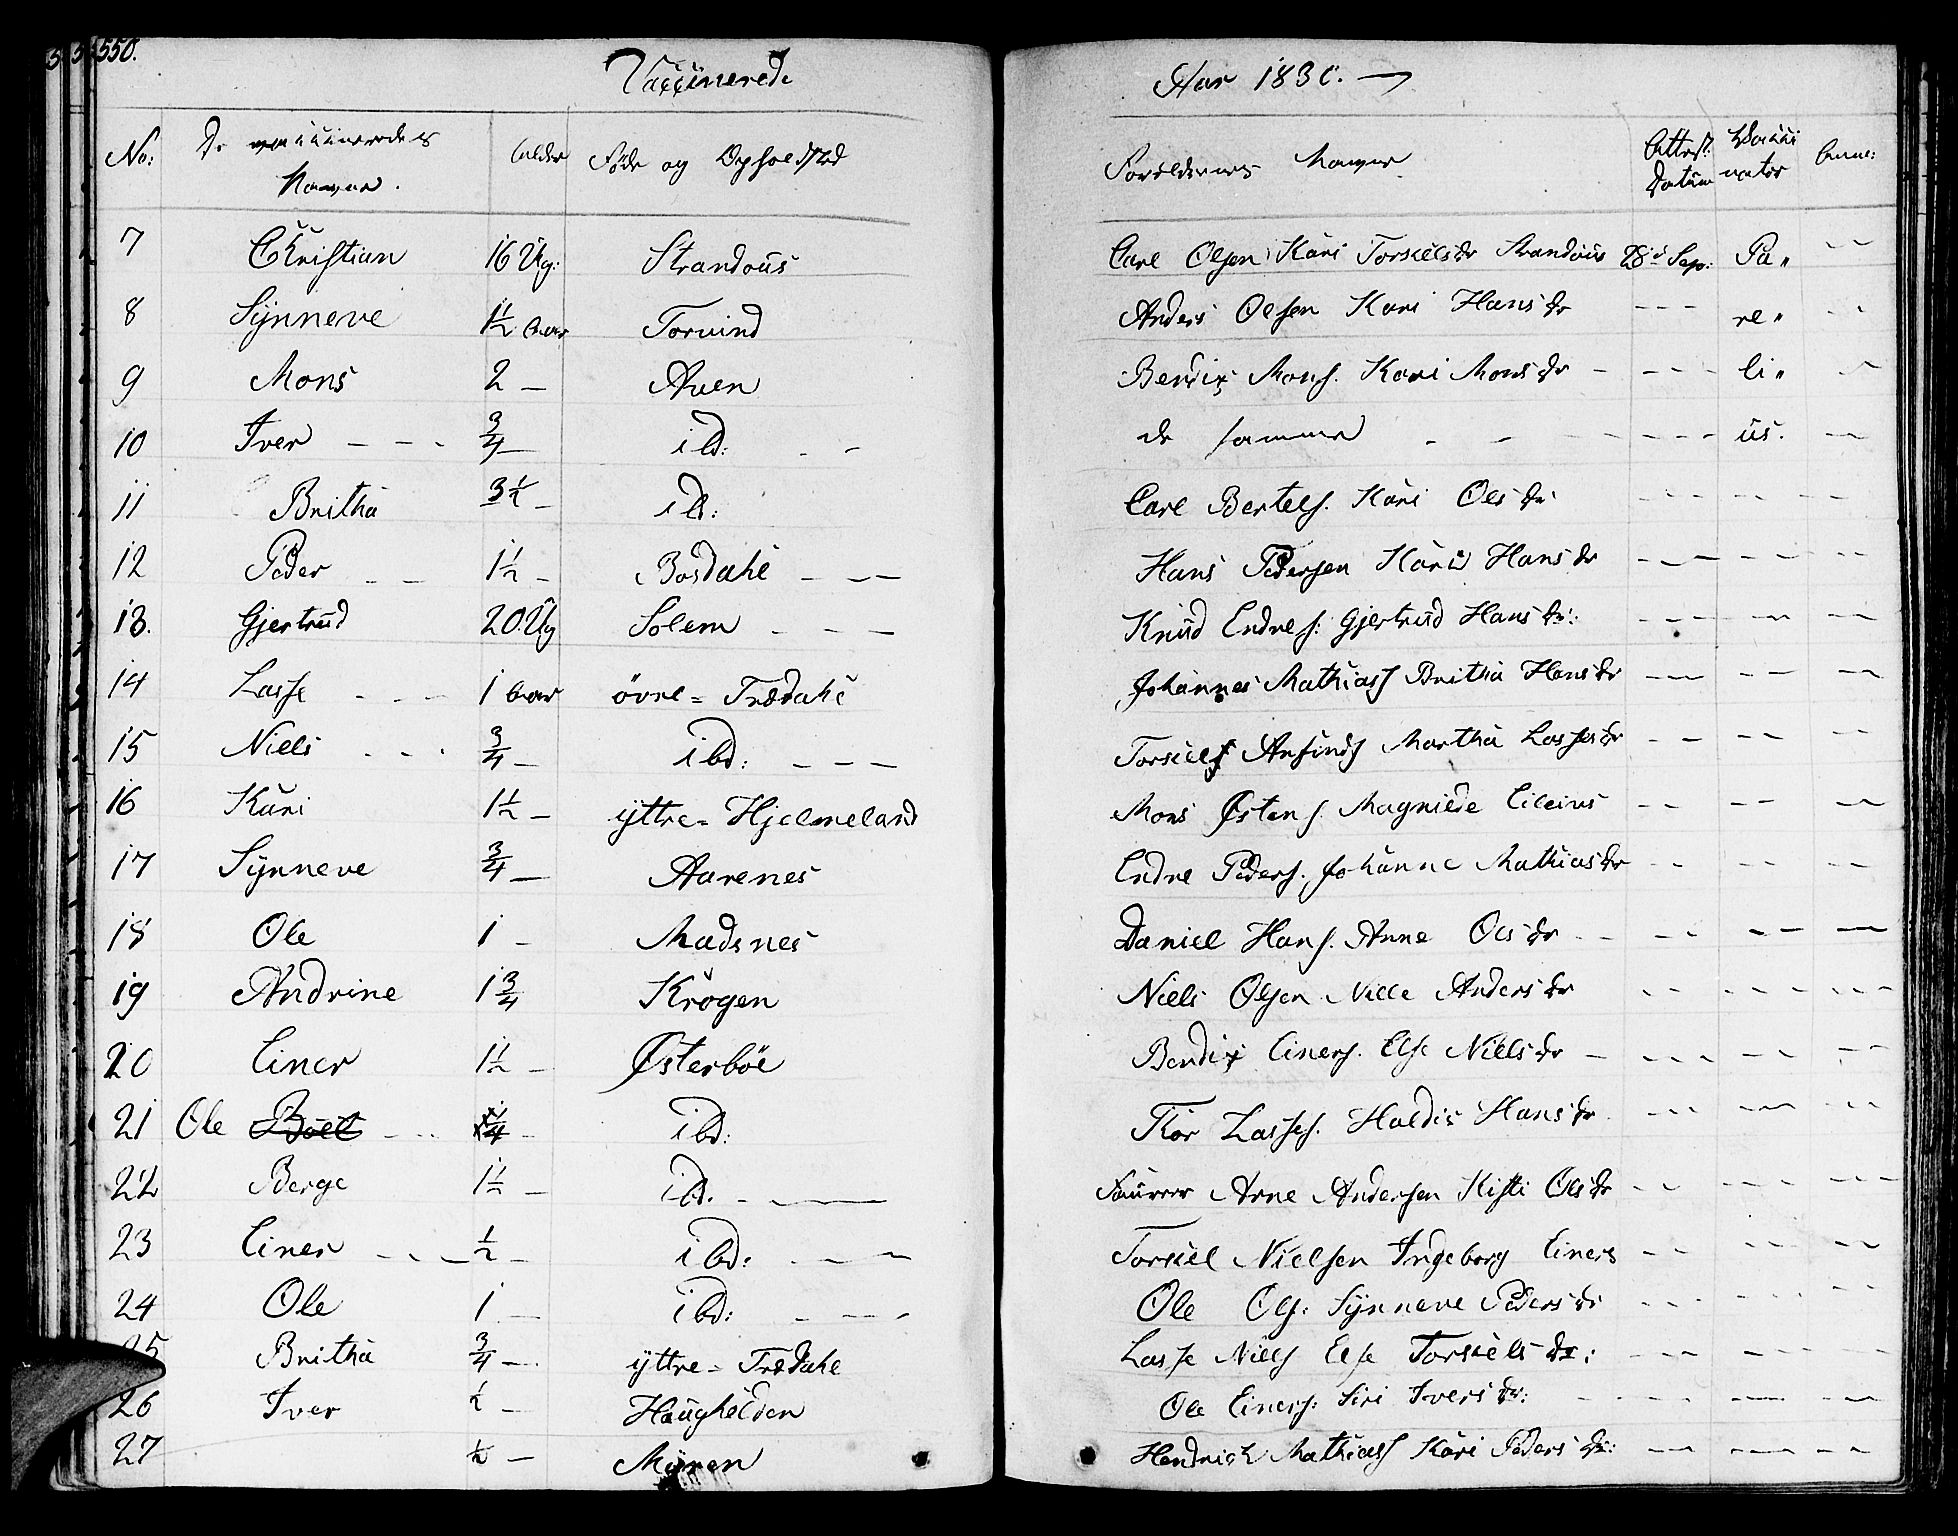 550.
Vaccinerede Aar 1830.
No: De vaccineredes Navne. Alder Føde og Opholdsted Forældrenes Navne Attest: Datum Vacci nator Anm:
7 Christian 16 Ug: Strandous Carl Olsen Kari Torkielsdr Strandous 28d Sep: Pa„
8 Synneve 1½ Aar Torvind Anders Olsen Kari Hansdr - - - re„
9 Mons 2 — Aven Bendix Mons. Kari Monsdr - - - - li„
10 Iver - - - ¾ — ibd: - - de samme - - - - - us.
11 Britha 3½ - ibd: Carl Bertels. Kari Olsdr
12 Peder - - 1½ - Bosdahl - - - Hans Pedersen Kari Hansdr
13. Gjertrud 20. Ug Solem - - - Knud Endres: Gjertrud Hansdr:
14 Lasse - - - 1 Aar övre= Trædahl Johannes Mathiass Britha Hansdr
15 Niels - - - ¾ — ibd: - - - Torkiels Ansinds Martha Lassesdr
16 Kari 1½ — yttre= Hjelmeland Mons Østens. Magnilde
17 Synneve ¾ — Aarenes Endre Peders. Johanne Mathiasdr
18 Ole 1 - Madsnes Daniel Hans. Anne Olsdr
19 Andrine 1¾ Krogen Niels Olsen Nille Andersdr
20 Einer 1½ — Østerböe Bendix Einers. Else Nielsdr
21 Ole Boel - - ¼ - ibd: Thor Lasses. Haldis Hansdr
22 Berge 1½ — ibd. - - — Arne Andersen Kisti Olsdr
23 Einer - - - ½ - ibd: - - - Torkiel Nielsen Ingeborg Einers
24 Ole 1 — ibd: - - - Ole Ols: Synneve Pedersdr
25 Britha ¾ — yttre= Trædahl Lasse Niels Else Torkielsdr:
26 Iver ½ — Haughölden Ole Einers: Siri Iversdr:
27 ½ — Myren Hendrich Mathiass Kari Pedersdr: